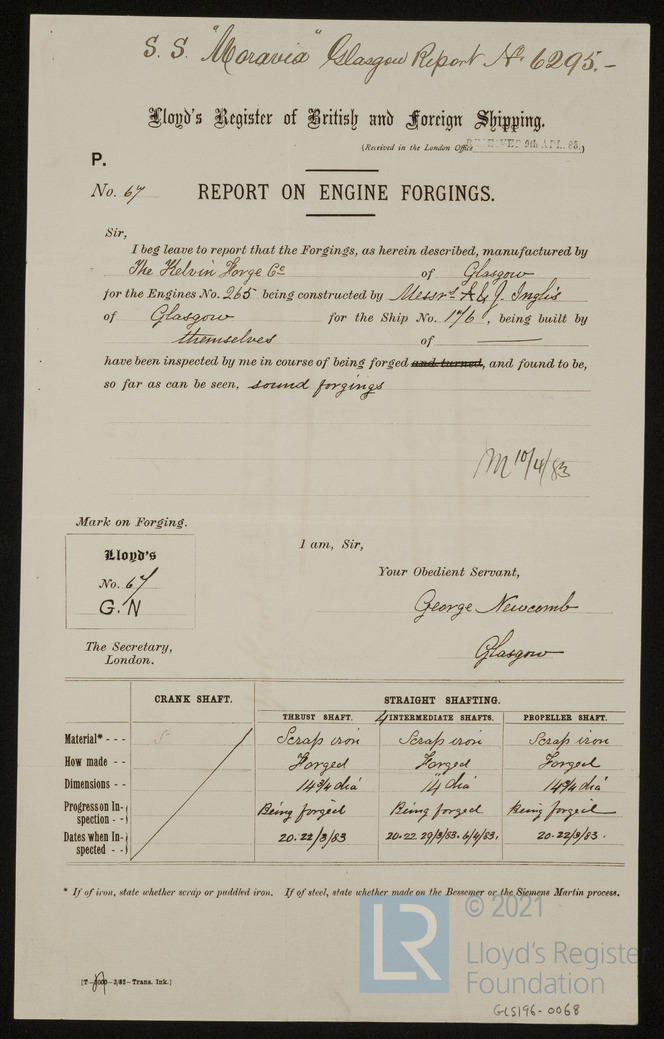 S. S. "Moravia" Glasgow Report No. 6295.-
Lloyd's Register of British and Foreign Shipping.
(Received in the London Office RECEIVED 9th APL. 83.)
P.
No. 67 REPORT ON ENGINE FORGINGS.
Sir,
I beg leave to report that the Forgings, as herein described, manufactured by
The Kelvin Forge Co of Glasgow
for the Engines No. 265 being constructed by Messrs A & J. Inglis
of Glasgow for the Ship No. 176, being built by
themselves of ———
have been inspected by me in course of being forged and turned, and found to be,
so far as can be seen, sound forgings
10/4/83
Mark on Forging.
Lloyd's
No. 67
G. N
I am, Sir,
Your Obedient Servant,
George Newcomb
Glasgow
The Secretary,
London.
CRANK SHAFT. STRAIGHT SHAFTING.
THRUST SHAFT. 4 INTERMEDIATE SHAFTS. PROPELLER SHAFT.
Material* - - - Scrap iron Scrap iron Scrap iron
How made - - Forged Forged Forged
Dimensions - - 14 3/4 dia 14 dia 14 3/4 dia
Progress on In-
spection - - Being forged Being forged Being forged
Dates when In-
spected - - 20.22/3/83 20.22 29/3/83. 6/4/83. 20.22/3/83.
* If of iron, state whether scrap or puddled iron. If of steel, state whether made on the Bessemer or the Siemens Martin process.
LR
© 2021
Lloyd's Register
Foundation
2/82—Trans. Ink.]
GLS196-0068